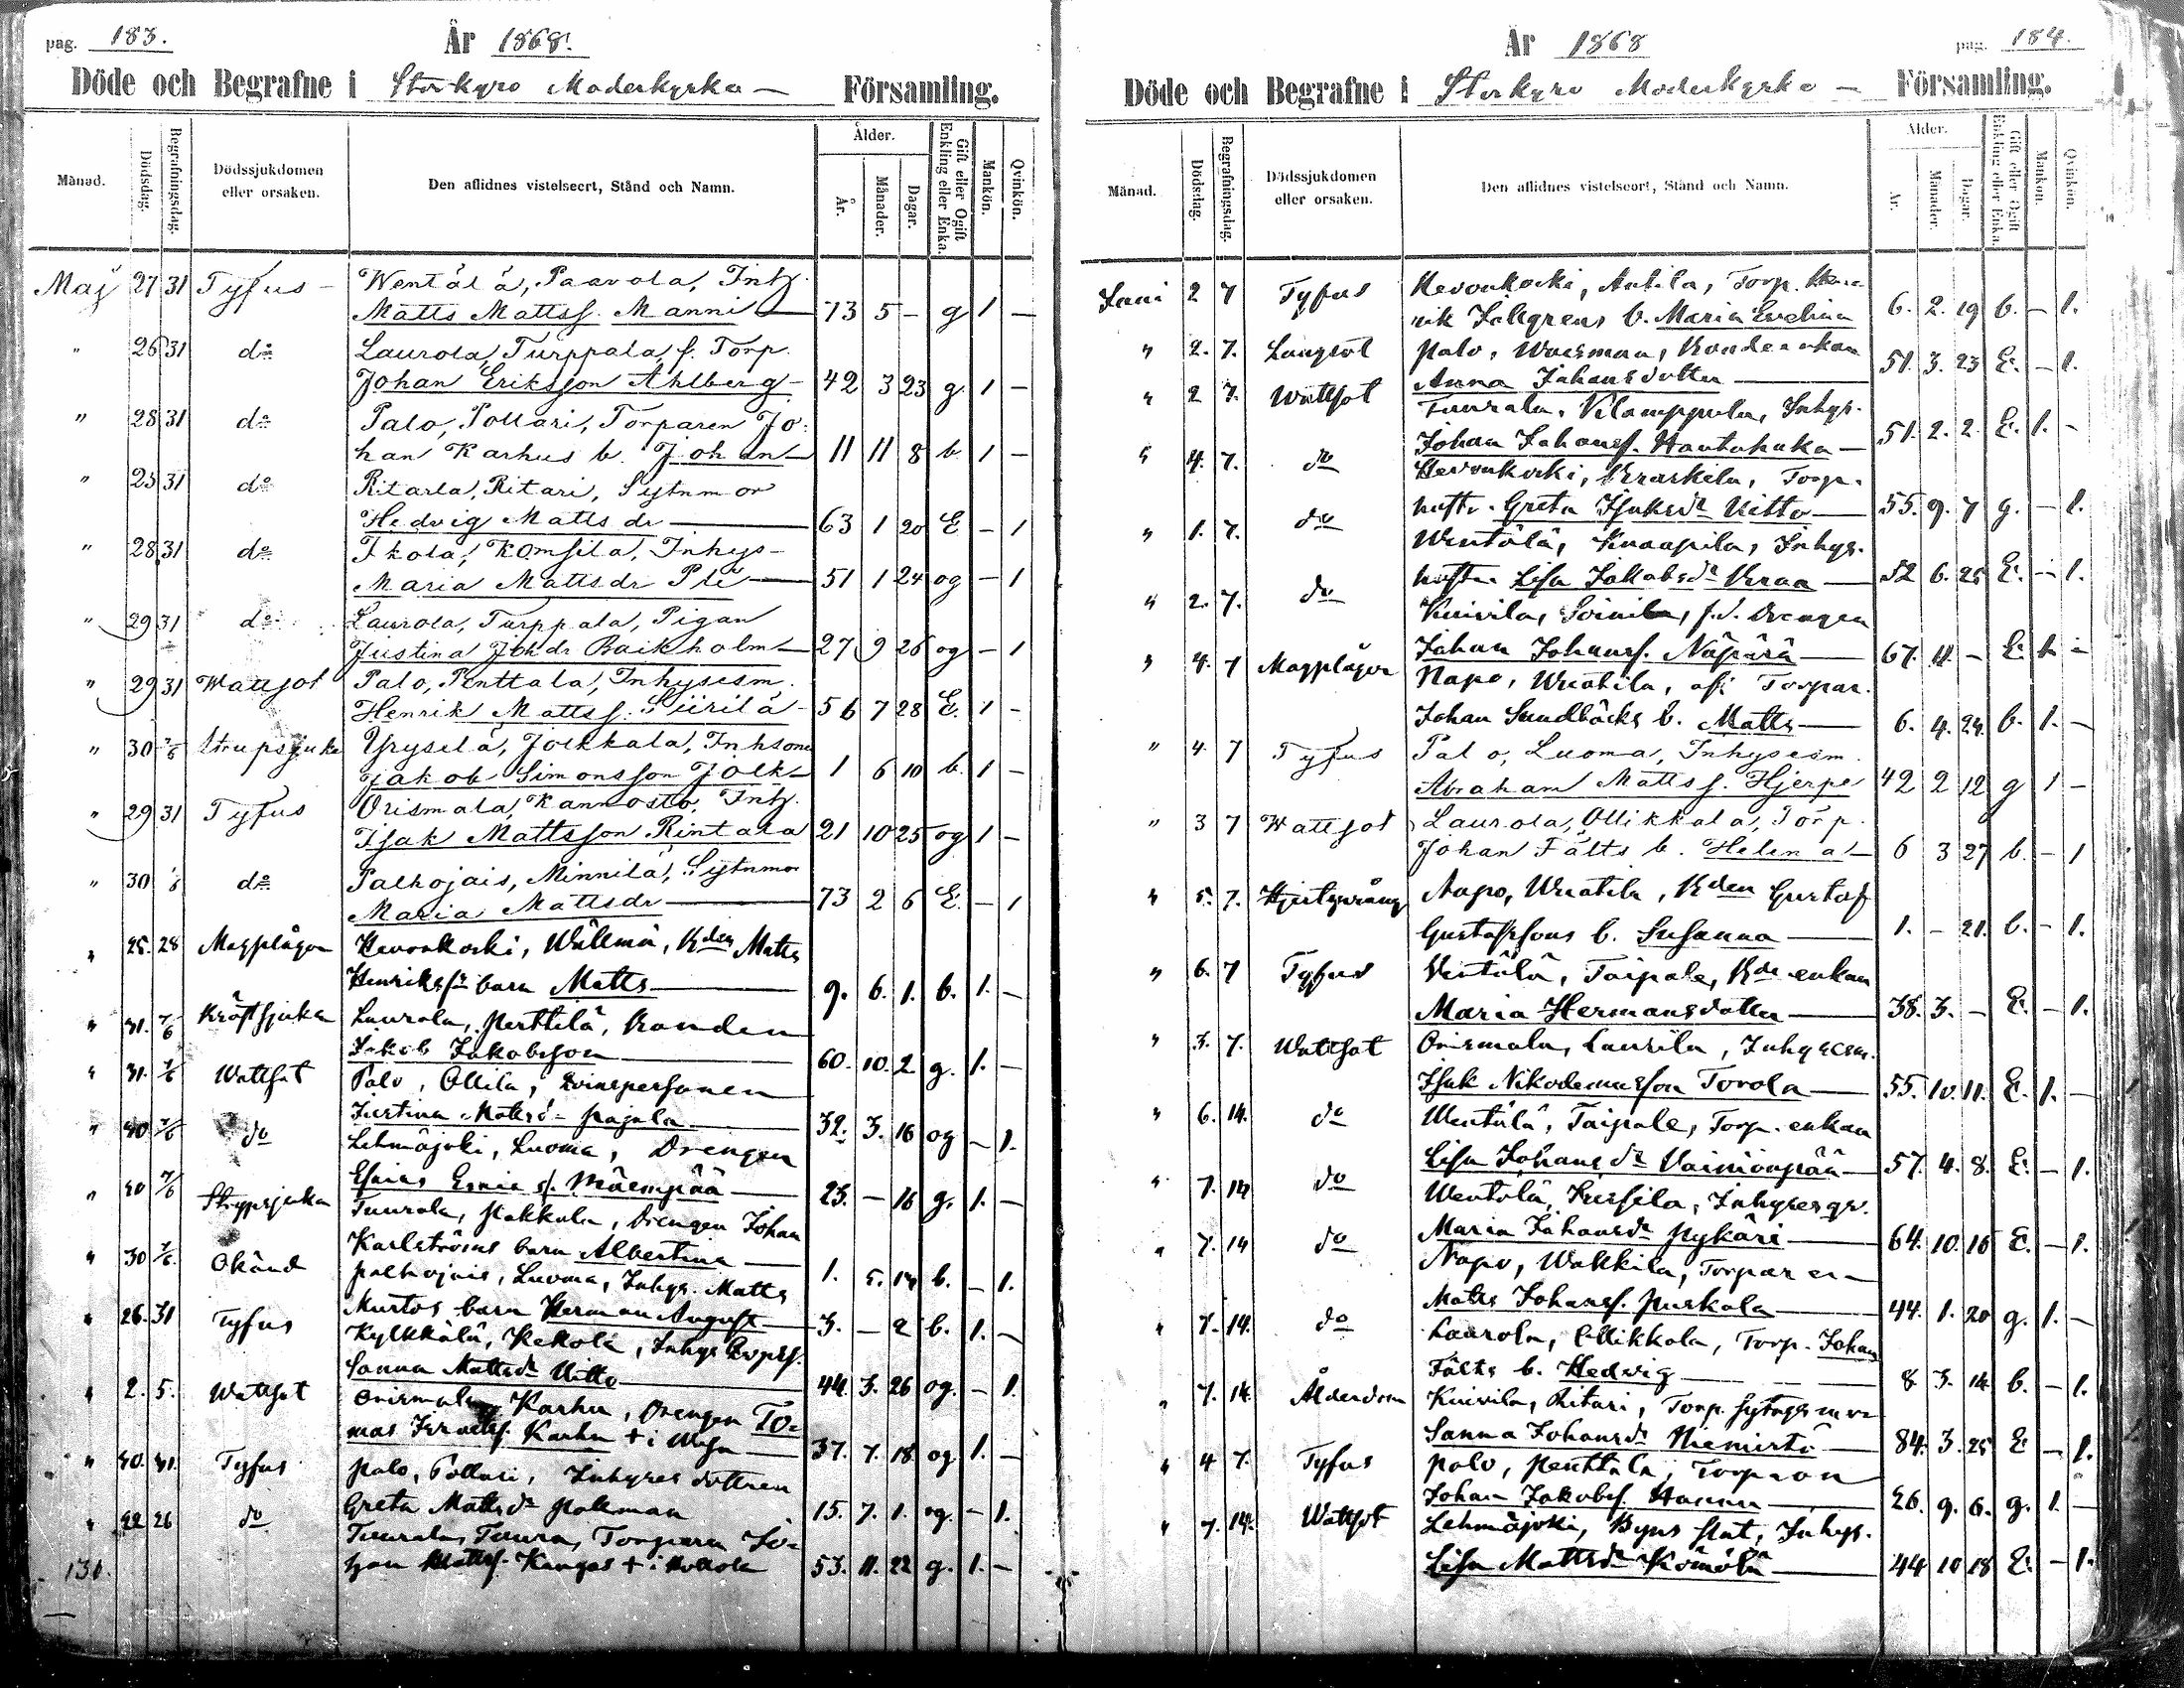 pag. 183.
År 1868.
Döde och Begrafne i Storkyro Moderkyrka — Församling.
Månad. Dödsdag. Begrafningsdag. Dödssjukdomen eller orsaken. Den aflidnes vistelseort, Stånd och Namn. Ålder. År. Månader. Dagar. Gift eller Ogift Enkling eller Enka. Mankön. Qvinkön.
Maj 27 31 Tyfus — Wentälä, Paavola, Inh.
Matts Mattss. Manni — 73 5 — g 1 —
" 26 31 do Laurola, Turppala, f. Torp.
Johan Eriksson Ahlberg — 42 3 23 g. 1 —
" 28 31 do Palo, Pollari, Torparen Jo-
han Karhus b. Johan — 11 11 8 b 1 —
" 25 31 do Ritarla, Ritari, Sytnmor
Hedvig Matts dr — 63 1 20 E — 1
" 28 31 do Ikola, Komsila, Inhys-
Maria Mattsdr Pli — 51 1 24 og — 1
" 29 31 do Laurola, Turppala, Pigan
Justina Joh dr Backholm — 27 9 26 og — 1
" 29 31 Wattsot Palo, Penttala, Inhysesm.
Henrik Mattss. Siirilä — 56 7 28 E. 1 —
" 30 7/6 Strupsjuka Yryselä, Jolkkala, Inhsone
Jakob Simonsson Jolk — 1 6 10 b. 1 —
" 29 31 Tyfus Orismala, Kannosto, Inh.
Isak Mattsson Rintala 21 10 25 og 1 —
" 30 /6 do Palhojais, Minnilä, Sytnmor
Maria Mattsdr — 73 2 6 E. — 1
" 25. 28 Magplågor Hevonkoski, Wällmä, Bden Matts
Henrikss barn Matts — 9. 6. 1. b. 1. —
" 31. 7/6 Kräftsjuka Laurola, Perttilä, Bonden
Jakob Jakobsson — 60. 10. 2 g. 1. —
" 31. 7/6 Wattsot Palo, Ollila, Qvinspersonen
Justina Mattsd. Pajula — 32. 3. 16 og — 1.
" 30 7/6 do Lehmäjoki, Luoma, Drengen
Esaias Esaias s. Mäempää — 23. — 16 g. 1. —
" 30 7/6 Strypsjuka Tuurala, Pakkala, Drengen Johan
Karlströms barn Albertina — 1. 5. 14 b. — 1.
" 30 7/6 Okänd Palhojais, Luoma, Inhys. Matts
Murtos barn Herman August — 3. — 2 b. 1. —
" 26. 31 Tyfus Kylkkälä, Kekola, Inhys
Sanna Mattsdr Witto — 44. 3. 26 og. — 1.
" 2. 5. Wattsot Orismala, Karhu, Drengen To-
mas Israels. Karhu + i Wasa — 37. 7. 18 og 1. —
" 30. 31. Tyfus Palo, Pollari, Inhyses dottren
Greta Mattsdr Palkman 15. 7. 1. og. — 1.
" 22 26 do Tuurala, Tuura, Torparen
Mattss. Kangas + i 53. 11. 22 g. 1. —
131.
År 1868
pag. 184.
Döde och Begrafne i Storkyro Moderkyrka — Församling.
Månad. Dödsdag. Begrafningsdag. Dödssjukdomen eller orsaken. Den aflidnes vistelseort, Stånd och Namn. Ålder. År. Månader. Dagar. Gift eller Ogift Enkling eller Enka. Mankön. Qvinkön.
Juni 2 7 Tyfus Hevonkoski, Antila, Torp. Hen-
rik Fällgrens b. Maria Evelina 6. 2. 19 b. — 1.
" 2. 7. Lungsot Palo, Warsman, Bondeenkan
Anna Johansdotter — 51. 3. 23 E. — 1.
" 2 7. Wattsot Tuurala, Vilamppula, Inhys.
Johan Johanss. Hautahuka — 51. 2. 2. E. 1. —
" 4. 7. do Hevonkoski, Krarkila, Torp.
hustr. Greta Isaksdr Witto — 55. 9. 7 g. — 1.
" 1. 7. do Wentälä, Knaapila, Inhys.
hustr. Lisa Jakobsdr Kraa — 52 6. 25 E. — 1.
" 2. 7. do Kuivila, Soinila, f.d. Drengen
Johan Johanss. Näpärä — 67. 11. — E. 1. —
" 4. 7 Magplågor Napo, Wuatila, afs. Torpar.
Johan Sundbäcks b. Matts — 6. 4. 24. b. 1. —
" 4. 7 Tyfus Palo, Luoma, Inhysesm.
Abraham Mattss. Hjerpe 42 2 12 g 1 —
" 3 7 Wattsot Laurola, Ollikkala, Torp.
Johan Fälts b. Helena — 6 3 27 b. — 1
" 5. 7. Hjertsprång Napo, Wuatila, Bden Gustaf
Gustafssons b. Susanna — 1. — 21. b. — 1.
" 6. 7 Tyfus Wentälä, Taipale, Bde enkan
Maria Hermansdotter — 38. 3. — E. — 1.
" 3. 7. Wattsot Orismala, Laurila, Inhysesm.
Isak Nikodemusson Torola — 55. 10. 11. E. 1. —
" 6. 14. do Wentälä, Taipale, Torp. enkan
Lisa Johansdr Vainionpää — 57. 4. 8. E. — 1.
" 7. 14 do Wentälä, Kussila, Inhysesqv.
Maria Johansdr Pykäri — 64. 10. 16 E. — 1.
" 7. 14 do Napo, Wakkila, Torparen
Matts Johanss. Puskala — 44. 1. 20 g. 1. —
" 7. 14. do Laurola, Ollikkala, Torp. Johan
Fälts b. Hedvig — 8 3. 14 b. — 1.
" 7. 14. Ålderdom Kuivila, Ritari, Torp. Sytnges mor
Sanna Johansdr Niemistö — 84. 3. 25 E — 1.
" 4 7. Tyfus Palo, Penttala, Torparen
Johan Jakobss. Hannu — 26. 9. 6. g. 1. —
" 7. 14. Wattsot Lehmäjoki, Inhys.
Lisa Mattsdr Kömölä — 44 10 18 E. — 1.